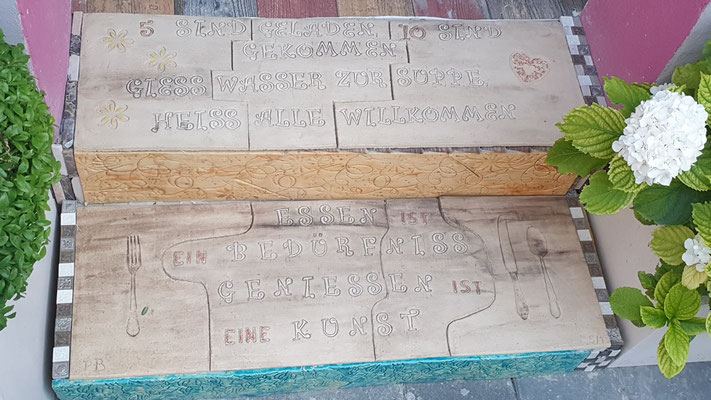 5 SIND GELADEN 10 SIND
GEKOMMEN
GIESS WASSER ZUR SUPPE
HEISS ALLE WILLKOMMEN
ESSEN IST
EIN BEDÜRFNISS
GENIESSEN IST
EINE KUNST